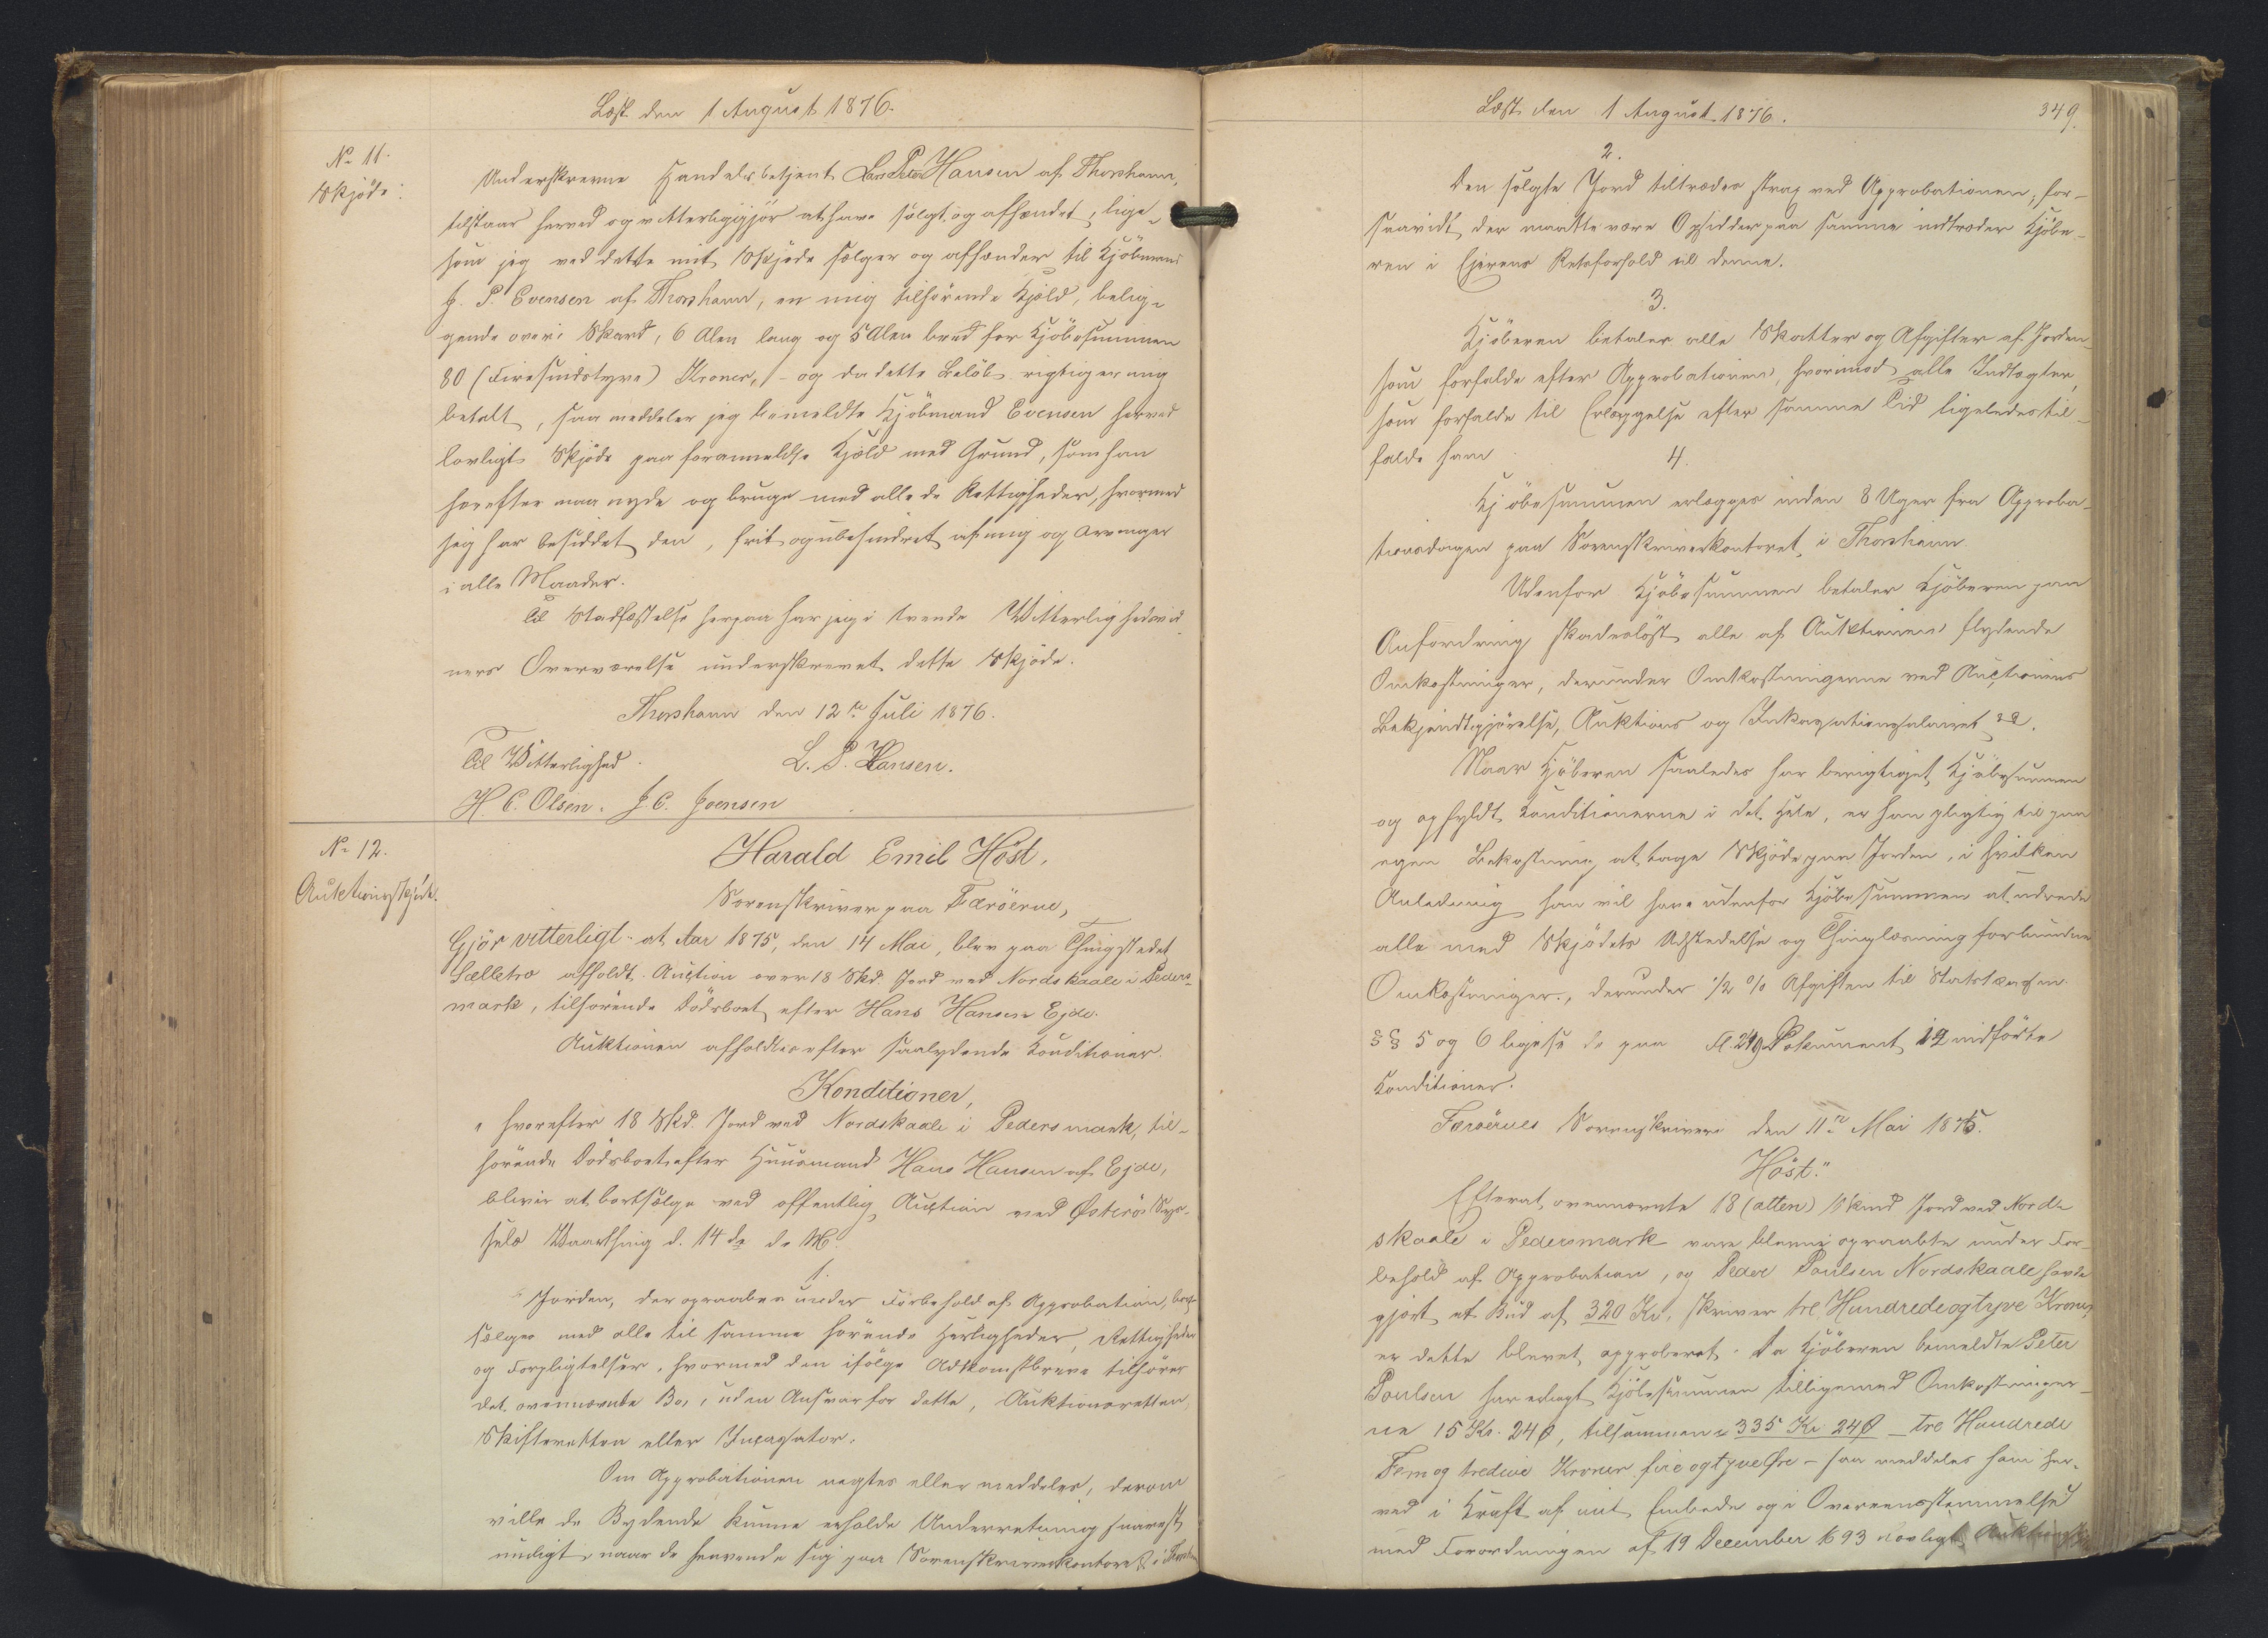 Læst den 1 August 1876.
No 11.
Skjöde:
Underskrevne Handelsbetjent Lars Peter Hansen af Thorshavn,
tilstaar herved og vitterliggjør at have solgt og afhændet, lige-
som jeg ved dette mit Skjöde sælger og afhænder til Kjöbmand
J. P. Evensen af Thorshavn, en mig tilhörende Kjæld, belig-
gende over i Skard, 6 Alen lang og 5 Alen bred for Kjöbesummen
80 (Firesindstyve) Kroner, - og da dette Belöb rigtig er mig
betalt, saa meddeler jeg bemeldte Kjöbmand Evensen herved
lovligt Skjöde paa foranmeldte Kjæld med Grund, som han
herefter maa nyde og bruge med alle de Rettigheder, hvormed
jeg har besiddet den, frit og ubehindret af mig og Arvinger
i alle Maader.
Til Stadfæstelse herpaa har jeg i tvende Vitterlighedsvid-
ners Overværelse underskrevet dette Skjöde.
Thorshavn den 12te Juli 1876.
Til Vitterlighed L. P. Hansen.
H. C. Olsen. J. C. Joensen
No 12.
Auktionsskjöde.
Harald Emil Höst,
Sorenskriver paa Færöerne,
Gjör vitterligt: at Aar 1875, den 14 Mai, blev paa Thingstedet
Selletræ afholdt Auction over 18 Skd. Jord ved Nordskaale i Peders-
mark, tilhörende Dödsboet efter Hans Hansen Ejde.
Auktionen afholdtes efter saalydende Conditioner.
Konditioner,
"hvorefter 18 Skd. Jord ved Nordskaale i Pedersmark, til-
hörende Dödsboet efter Huusmand Hans Hansen af Ejde,
bliver at bortsælge ved offentlig Auction ved Østerös Sys-
sels Vaarthing d. 14de ds M.
1.
Jorden, der opraabes under Forbehold af Approbation, bort-
sælges med alle til samme hörende Herligheder, Rettigheder
og Forpligtelser, hvormed den ifölge Adkomstbreve tilhörer
det ovennævnte Bo, uden Ansvar for dette, Auktionsretten,
Skifteretten eller Incassator.
Om Approbationen negtes eller meddeles, derom
ville de Bydende kunne erholde Underretning snarest
muligt, naar de henvende sig paa Sorenskriverkontoret i Thorshavn
Læst den 1 August 1876.
349.
2.
Den solgte Jord tiltrædes strax ved Approbationen; for-
saavidt der maatte være Opsidder paa samme indtræder Kjöbe-
ren i Ejerens Retsforhold til denne.
3.
Kjöberen betaler alle Skatter og Afgifter af Jorden
som forfalde efter Approbationen, hvorimod alle Indtægter,
som forfalde til Erlæggelse efter samme Tid ligeledes til-
falde ham
4.
Kjöbesummen erlægges inden 8 Uger fra Approba-
tionsdagen paa Sorenskriverkontoret i Thorshavn.
Udenfor Kjöbesummen betaler Kjöberen paa
Anfordring skadeslöst alle af Auktionen flydende
Omkostninger, derunder Omkostningerne ved Auctionens
Bekjendtgjörelse, Auktions og Inkassationssalairet &a.
Naar Kjöberen saaledes har berigtiget Kjöbesummen
og opfyldt Conditionerne i det Hele, er han pligtig til paa
egen Bekostning at tage Skjöde paa Jorden, i hvilken
Anledning han vil have udenfor Kjöbesummen at udrede
alle med Skjödets Udstedelse og Thinglæsning forbundne
Omkostninger, derunder 1/2 % Afgiften til Statskassen.
§§ 5 og 6 ligesom de paa fl. 219 Dokument 12 indförte
Conditioner.
Færöernes Sorenskriveri den 11te Mai 1875.
Höst."
Efterat ovennævnte 18 (atten) Skind Jord ved Nord-
skaale i Pedersmark vare blevne opraabte under For-
behold af Approbation, og Peder Poulsen Nordskaale havde
gjort et Bud af 320 Kr., skriver tre Hundrede og tyve Kroner,
er dette blevet approberet. Da Kjöberen bemeldte Peter
Poulsen har erlagt Kjöbesummen tilligemed Omkostninger-
ne 15 Kr. 24 Ø, tilsammen 335 Kr 24 Ø - tre Hundrede
Fem og tredive Kroner fire og tyve Øre - saa meddeles ham her-
ved i Kraft af mit Embede og i Overeensstemmelse
med Forordningen af 19 December 1693 lovligt Auktions